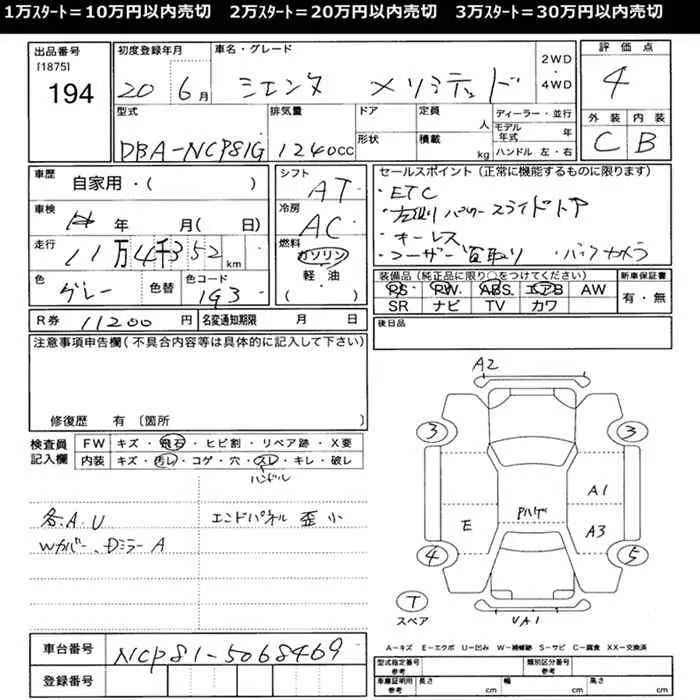 1万スタート＝10万円以内売切　2万スタート＝20万円以内売切　3万スタート＝30万円以内売切
出品番号 初度登録年月 車名・グレード 2WD・4WD 評価点
[1875]
194 20 6月 シエンタ 4
型式 排気量 ドア 定員 人 ディーラー・並行 外装 内装
形状 積載 kg モデル年式 年
DBA-NCP81G 1240cc ハンドル 左・右 C B
車歴 自家用・( ) シフト AT セールスポイント (正常に機能するものに限ります)
・ETC
車検 年 月( 日) 冷房 AC ・左側パワースライドドア
・キーレス
走行 11万4千352km 燃料 ガソリン ・ユーザー買取り ・バックカメラ
軽・油
( )
色 グレー 色替 色コード 1G3 装備品 (純正品に限り○をつけてください) 新車保証書
PS PW ABS エアB AW 有・無
SR ナビ TV カワ
R券 11200円 名変通知期限 月 日
後日品
注意事項申告欄 (不具合内容等は具体的に記入して下さい)
修復歴 有 〔箇所
検査員記入欄 FW キズ・飛石・ヒビ割・リペア跡・X要
内装 キズ・汚レ・コゲ・穴・スレ・キレ・破レ
ハンドル
各A.U エンドパネル 歪 小
Wカバー、Dミラー A
A2
3 3
A1
E Pハゲ A3
4 5
T
スペア
VA1
A－キズ E－エクボ U－凹み W－補修跡 S－サビ C－腐食 XX－交換済
車台番号 NCP81-5068469
登録番号
型式指定番号 参考 類別区分番号 参考
車庫証明用 参考 長さ cm 幅 cm 高さ cm